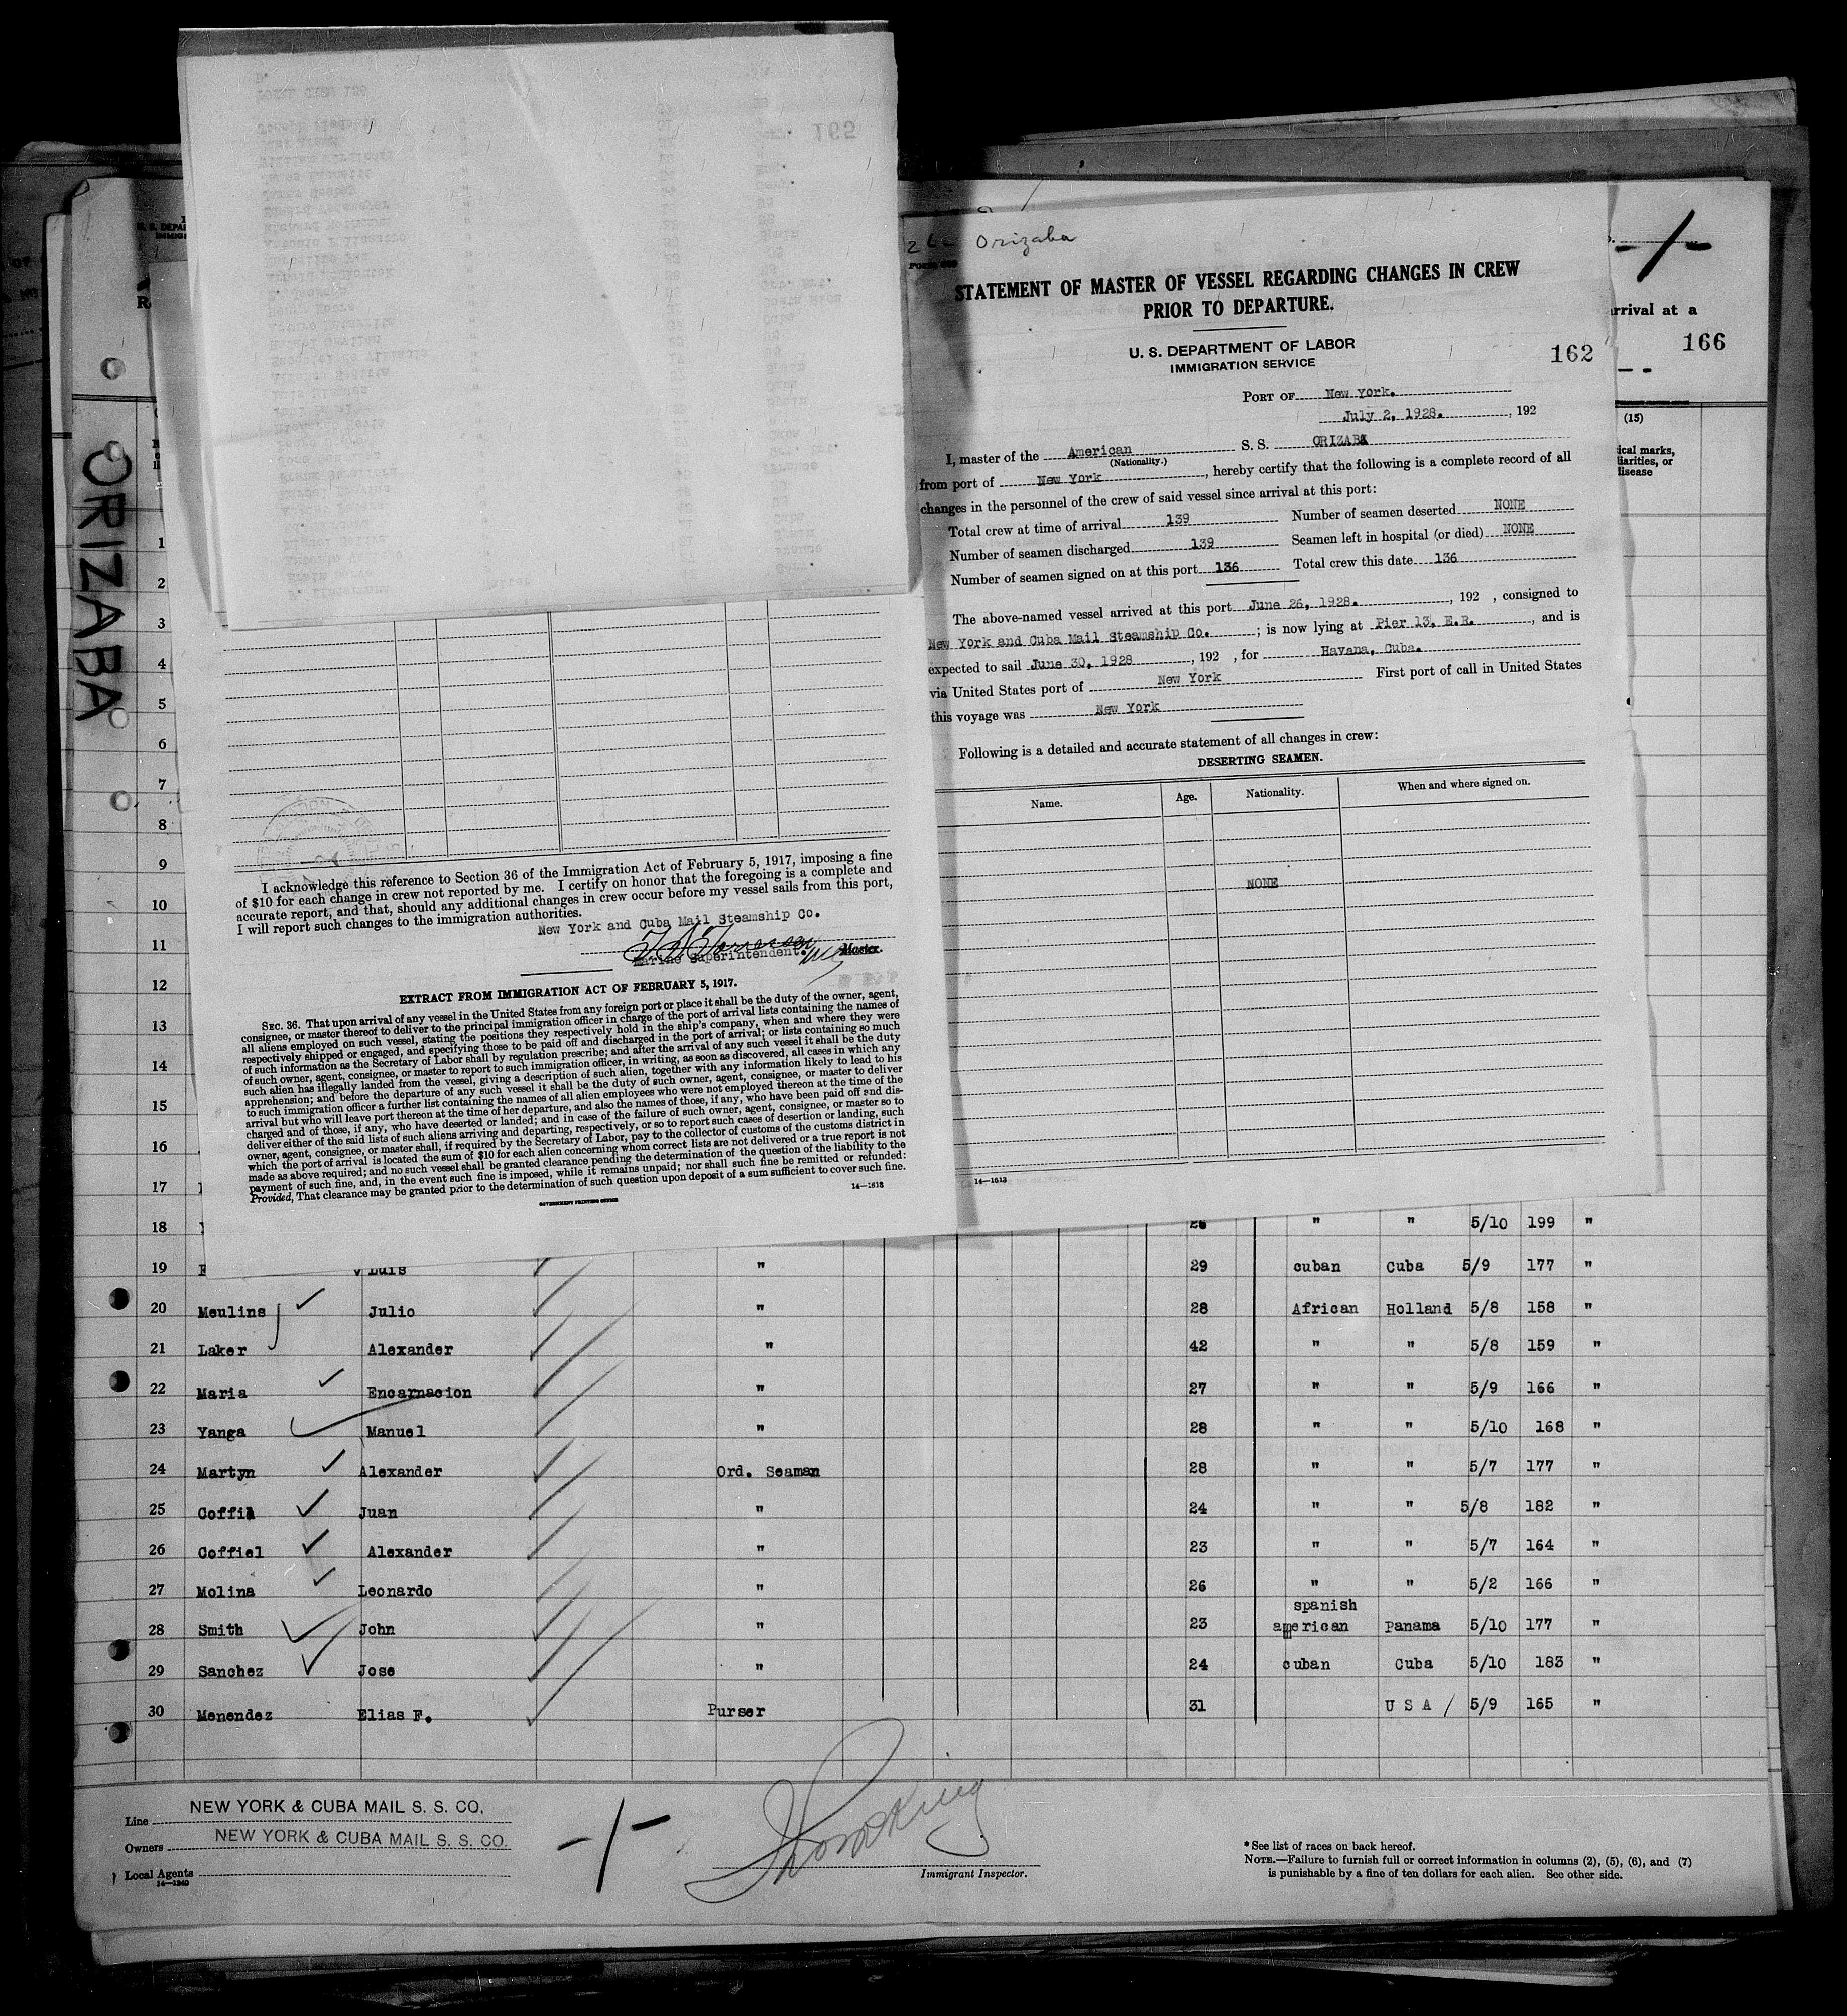 165
Orizaba
STATEMENT OF MASTER OF VESSEL REGARDING CHANGES IN CREW
PRIOR TO DEPARTURE.
U. S. DEPARTMENT OF LABOR
IMMIGRATION SERVICE
162
rrival at a
166
PORT OF New York.
July 2, 1928. , 192
I, master of the American S. S. ORIZABA
(Nationality.)
from port of New York , hereby certify that the following is a complete record of all
changes in the personnel of the crew of said vessel since arrival at this port:
Total crew at time of arrival 139 Number of seamen deserted NONE
Number of seamen discharged 139 Seamen left in hospital (or died) NONE
Number of seamen signed on at this port 136 Total crew this date 136
The above-named vessel arrived at this port June 26, 1928. , 192 , consigned to
New York and Cuba Mail Steamship Co. ; is now lying at Pier 13, E.R. , and is
expected to sail June 30, 1928 , 192 , for Havana, Cuba.
via United States port of New York First port of call in United States
this voyage was New York
Following is a detailed and accurate statement of all changes in crew:
DESERTING SEAMEN.
Name. Age. Nationality. When and where signed on.
NONE
14—1513
(15)
ical marks,
liarities, or
disease
ORIZABA
I acknowledge this reference to Section 36 of the Immigration Act of February 5, 1917, imposing a fine
of $10 for each change in crew not reported by me. I certify on honor that the foregoing is a complete and
accurate report, and that, should any additional changes in crew occur before my vessel sails from this port,
I will report such changes to the immigration authorities.
New York and Cuba Mail Steamship Co.
Marine Superintendent. Master.
EXTRACT FROM IMMIGRATION ACT OF FEBRUARY 5, 1917.
SEC. 36. That upon arrival of any vessel in the United States from any foreign port or place it shall be the duty of the owner, agent,
consignee, or master thereof to deliver to the principal immigration officer in charge of the port of arrival lists containing the names of
all aliens employed on such vessel, stating the positions they respectively hold in the ship's company, when and where they were
respectively shipped or engaged, and specifying those to be paid off and discharged in the port of arrival; or lists containing so much
of such information as the Secretary of Labor shall by regulation prescribe; and after the arrival of any such vessel it shall be the duty
of such owner, agent, consignee, or master to report to such immigration officer, in writing, as soon as discovered, all cases in which any
such alien has illegally landed from the vessel, giving a description of such alien, together with any information likely to lead to his
apprehension; and before the departure of any such vessel it shall be the duty of such owner, agent, consignee, or master to deliver
to such immigration officer a further list containing the names of all alien employees who were not employed thereon at the time of the
arrival but who will leave port thereon at the time of her departure, and also the names of those, if any, who have been paid off and dis-
charged and of those, if any, who have deserted or landed; and in case of the failure of such owner, agent, consignee, or master so to
deliver either of the said lists of such aliens arriving and departing, respectively, or so to report such cases of desertion or landing, such
owner, agent, consignee, or master shall, if required by the Secretary of Labor, pay to the collector of customs of the customs district in
which the port of arrival is located the sum of $10 for each alien concerning whom correct lists are not delivered or a true report is not
made as above required; and no such vessel shall be granted clearance pending the determination of the question of the liability to the
payment of such fine, and, in the event such fine is imposed, while it remains unpaid; nor shall such fine be remitted or refunded:
Provided, That clearance may be granted prior to the determination of such question upon deposit of a sum sufficient to cover such fine.
GOVERNMENT PRINTING OFFICE
14—1513
1
2
3
4
5
6
7
8
9
10
11
12
13
14
15
16
17
18 " " 5/10 199 "
19 Luis " 29 cuban Cuba 5/9 177 "
20 Meulins Julio " 28 African Holland 5/8 158 "
21 Laker Alexander " 42 " " 5/8 159 "
22 Maria Encarnacion " 27 " " 5/9 166 "
23 Yanga Manuel " 28 " " 5/10 168 "
24 Martyn Alexander Ord. Seaman 28 " " 5/7 177 "
25 Coffil Juan " 24 " " 5/8 182 "
26 Coffiel Alexander " 23 " " 5/7 164 "
27 Molina Leonardo " 26 " " 5/2 166 "
spanish
28 Smith John " 23 american Panama 5/10 177 "
29 Sanchez Jose " 24 cuban Cuba 5/10 183 "
30 Menendez Elias F. Purser 31 U S A / 5/9 165 "
Line NEW YORK & CUBA MAIL S. S. CO.
Owners NEW YORK & CUBA MAIL S. S. CO.
Local Agents
14—1240
Immigrant Inspector.
* See list of races on back hereof.
NOTE.—Failure to furnish full or correct information in columns (2), (5), (6), and (7)
is punishable by a fine of ten dollars for each alien. See other side.